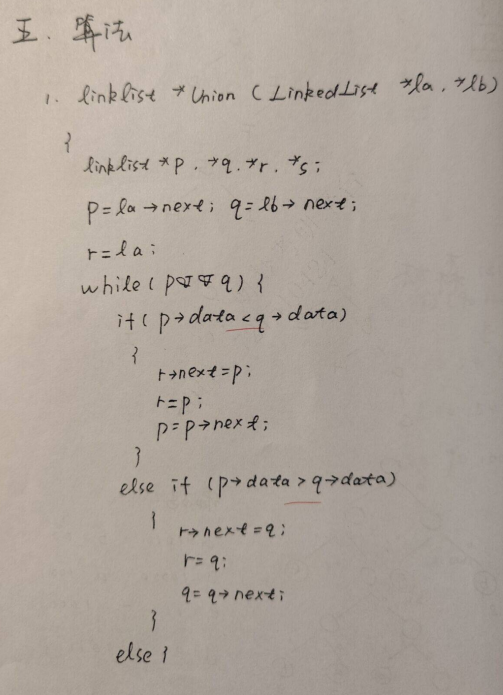 五. 算法
1. linklist *Union ( LinkedList *la, *lb)
{
linklist *p, *q, *r, *s;
p=la→next; q=lb→next;
r=la;
while(p&&q) {
if( p→data<q→data)
{
r→next=p;
r=p;
p=p→next;
}
else if (p→data>q→data)
{
r→next=q;
r=q;
q=q→next;
}
else {